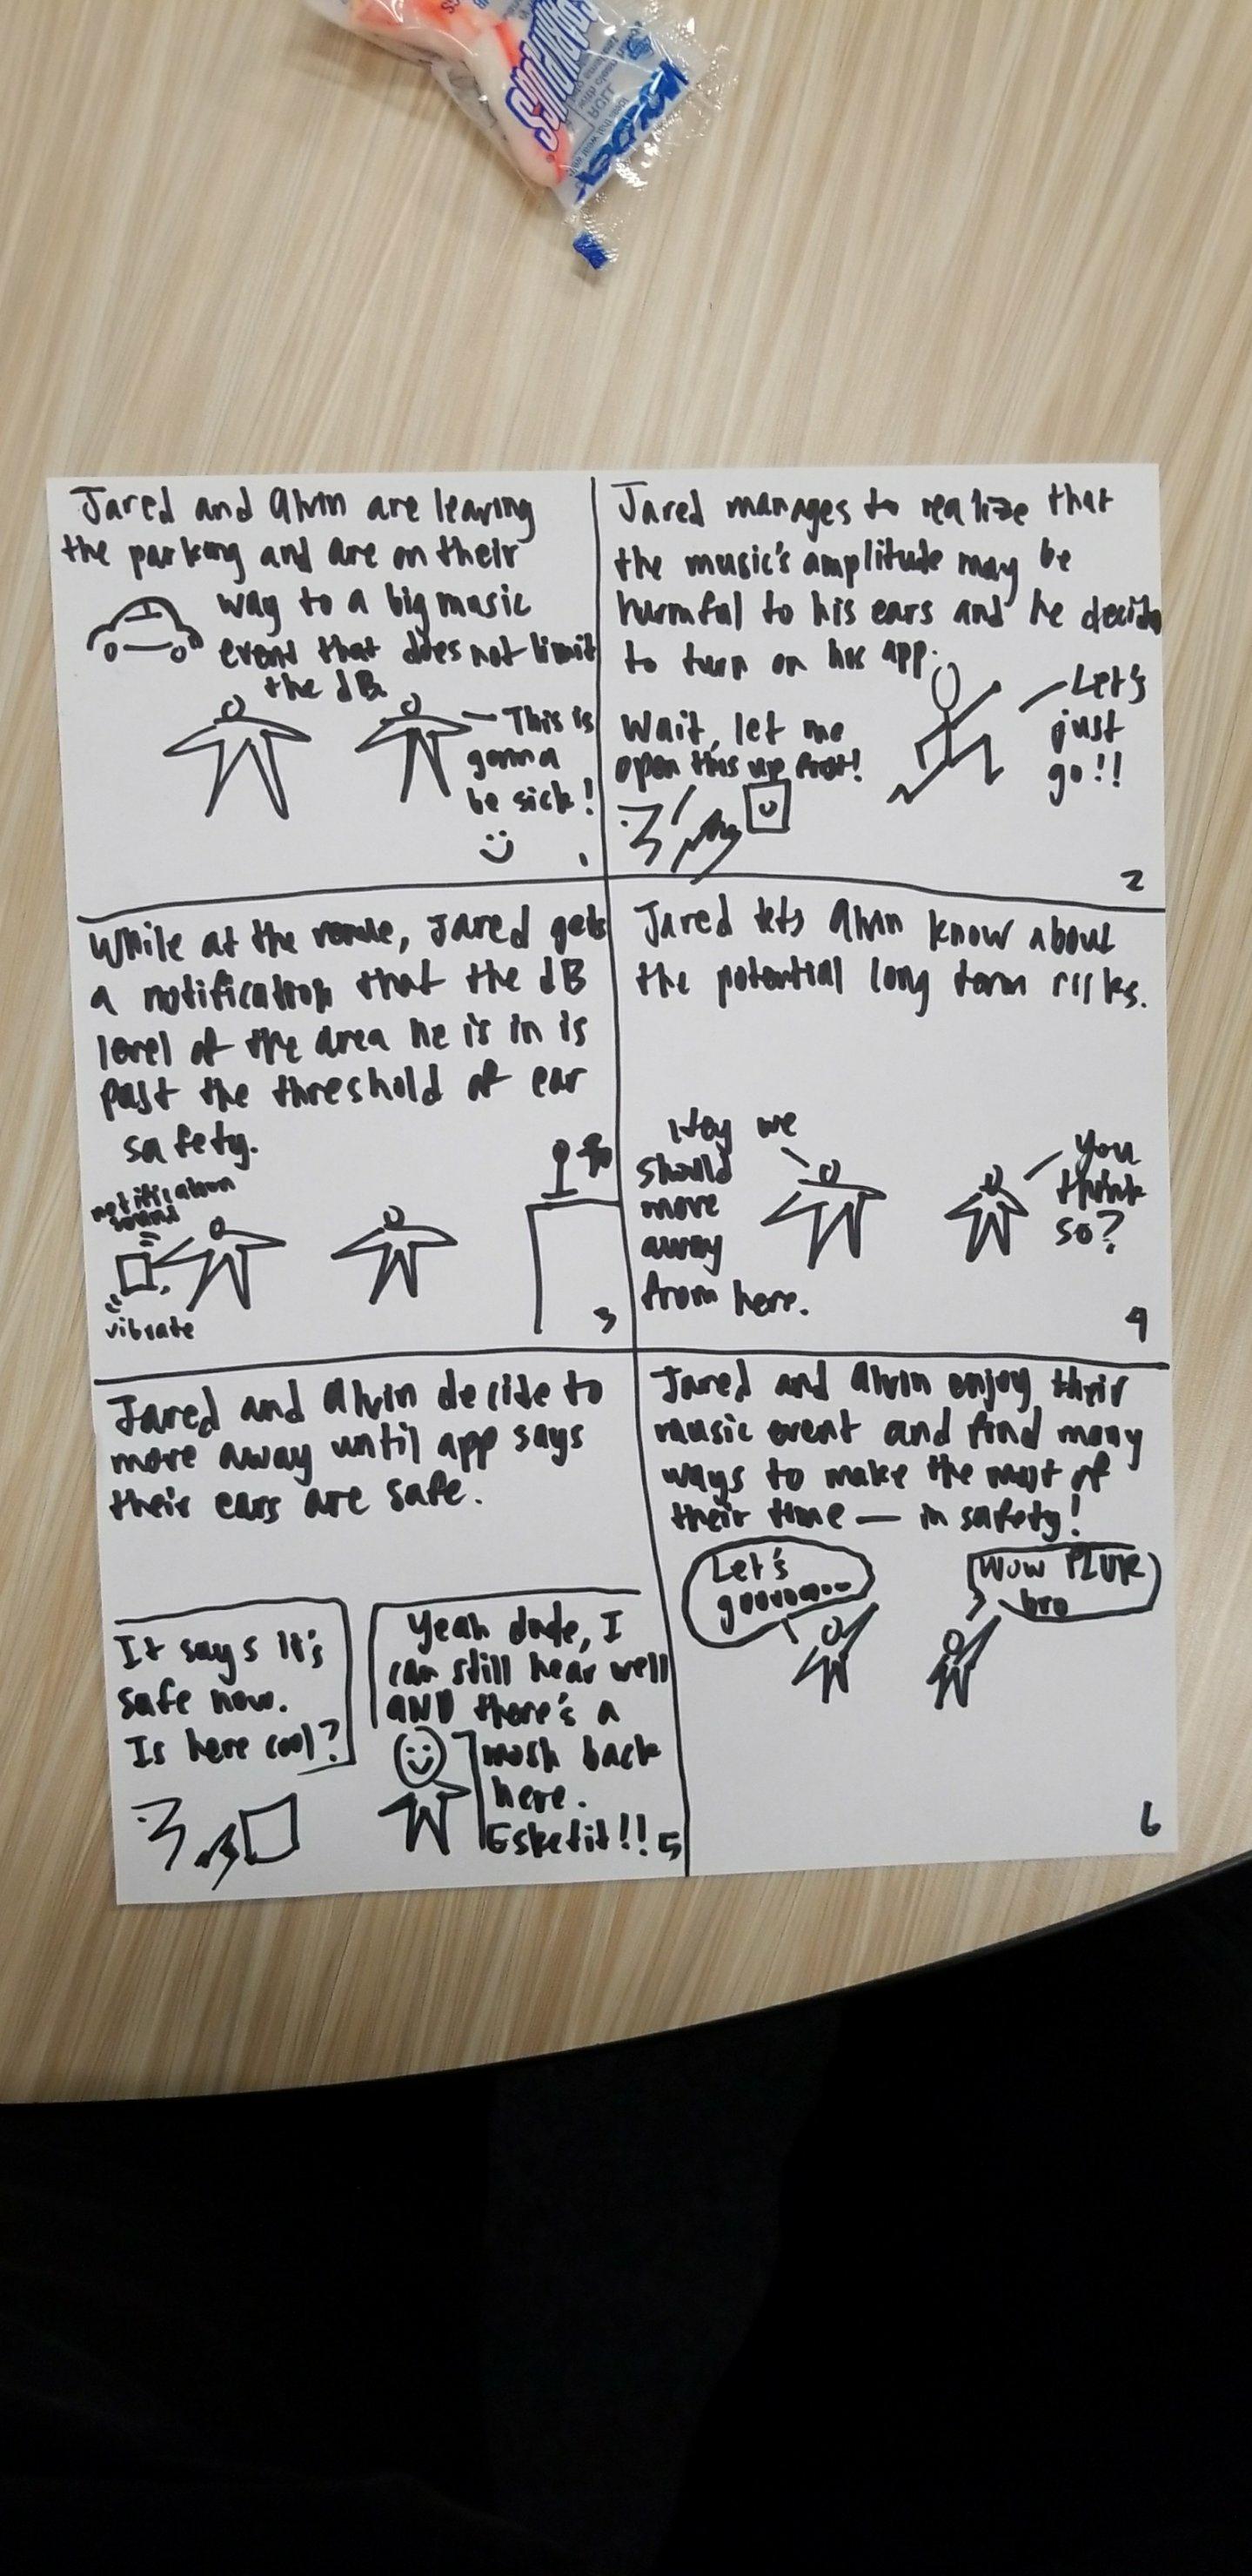 SparkPlugs
ROLL
Jared and Alvin are leaving
the parking and are on their
way to a big music
event that does not limit
the dB.
This is
gonna
be sick!
1
Jared manages to realize that
the music's amplitude may be
harmful to his ears and he decide
to turn on his app.
Wait, let me
open this up first!
Let's
just
go!!
2
While at the venue, Jared gets
a notification that the dB
level of the area he is in is
past the threshold of ear
safety.
notification
sound
vibrate
3
Jared lets Alvin know about
the potential long term risks.
Hey we
should
move
away
from here.
You
think
so?
4
Jared and Alvin decide to
move away until app says
their ears are safe.
It says it's
safe now.
Is here cool?
Yeah dude, I
can still hear well
AND there's a
mosh back
here.
Esketit!!
5
Jared and Alvin enjoy their
music event and find many
ways to make the most of
their time — in safety!
Let's
gooooo...
Wow PLUR
bro
6